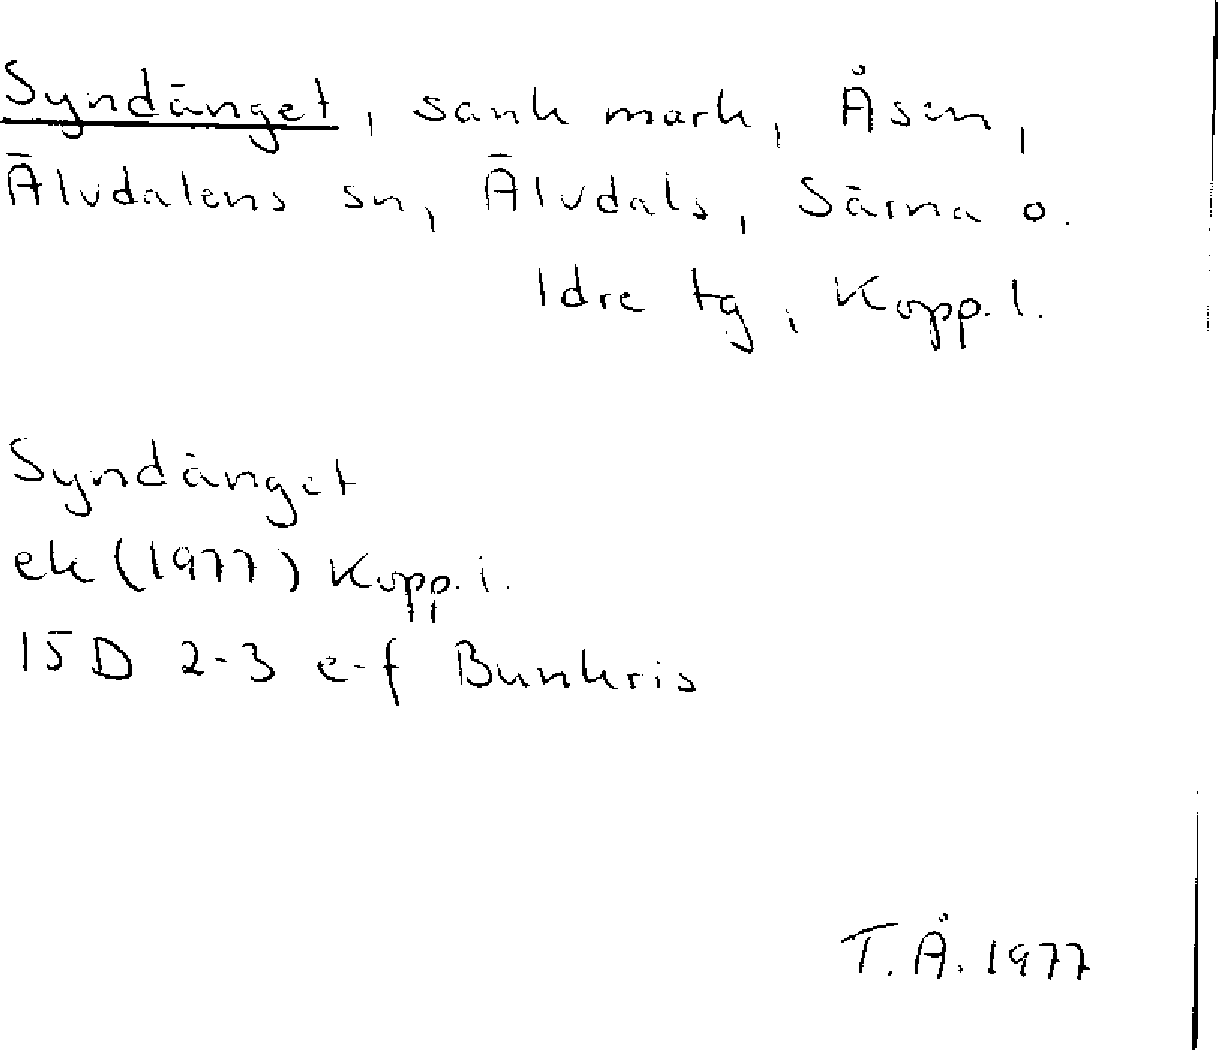 Syndänget, sank mark, Åsen,
Älvdalens sn, Älvdals, Särna o.
Idre tg, Kopp. l.
Syndänget
ek (1977) Kopp. l.
15D 2-3 e-f Bunkris
T. Å. 1977